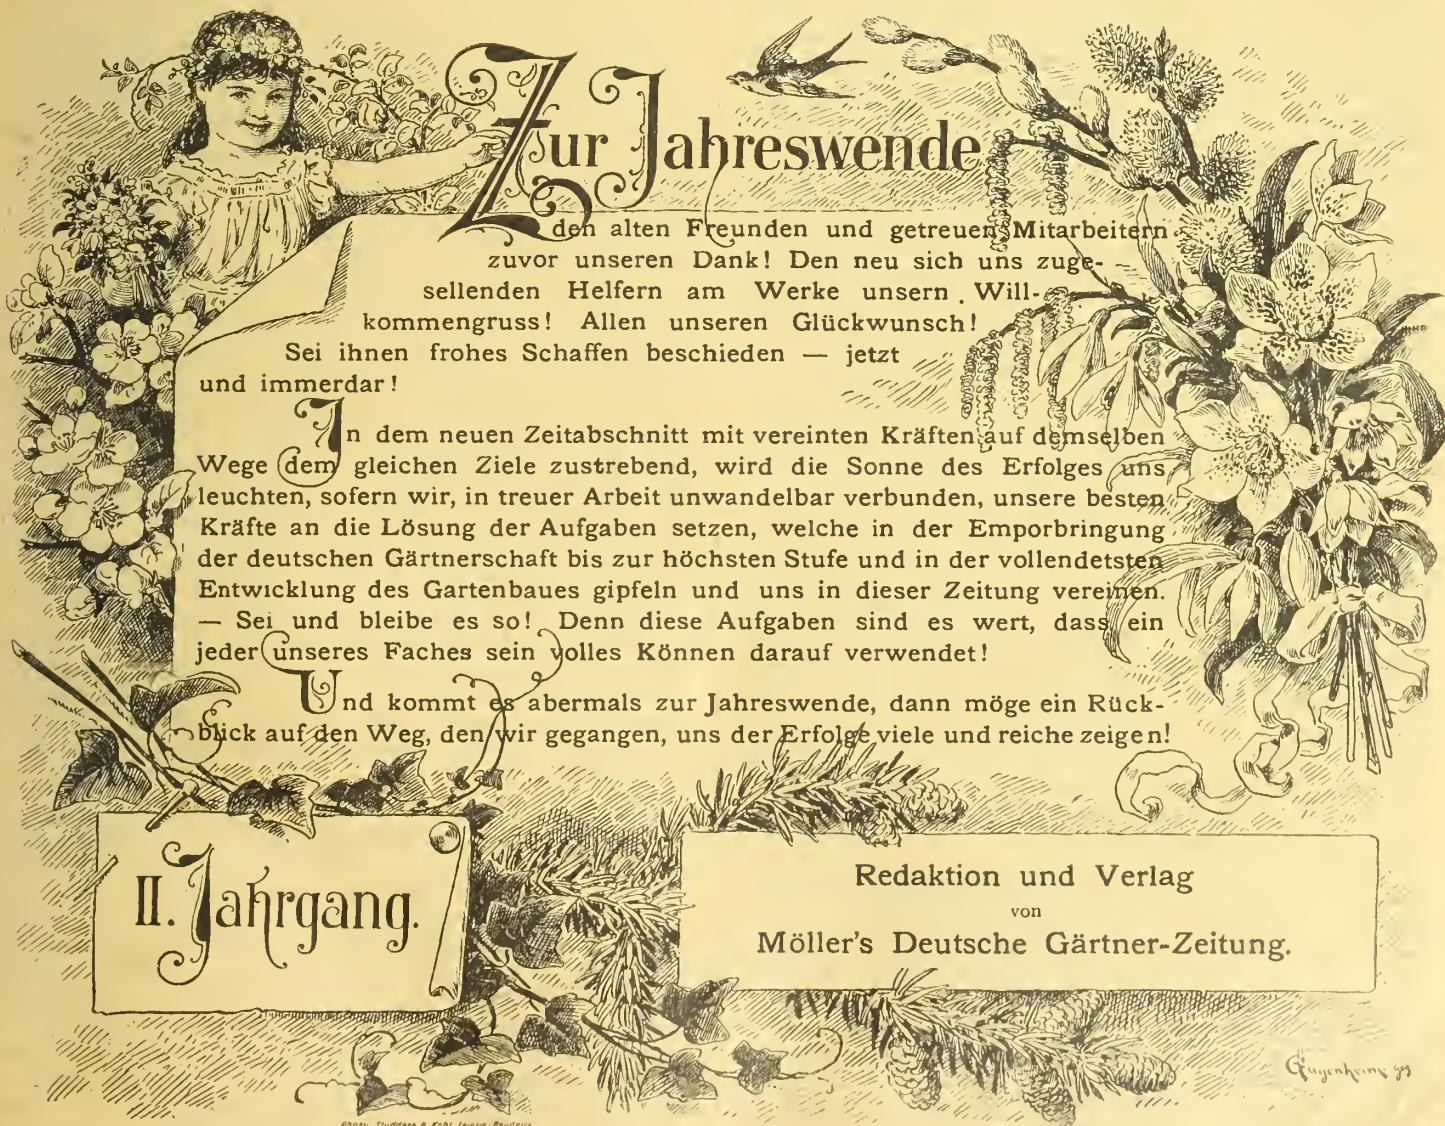 Zur Jahreswende
den alten Freunden und getreuen Mitarbeitern
zuvor unseren Dank! Den neu sich uns zuge-
sellenden Helfern am Werke unsern Will-
kommengruss! Allen unseren Glückwunsch!
Sei ihnen frohes Schaffen beschieden — jetzt
und immerdar!
In dem neuen Zeitabschnitt mit vereinten Kräften auf demselben
Wege dem gleichen Ziele zustrebend, wird die Sonne des Erfolges uns
leuchten, sofern wir, in treuer Arbeit unwandelbar verbunden, unsere besten
Kräfte an die Lösung der Aufgaben setzen, welche in der Emporbringung
der deutschen Gärtnerschaft bis zur höchsten Stufe und in der vollendetsten
Entwicklung des Gartenbaues gipfeln und uns in dieser Zeitung vereinen.
— Sei und bleibe es so! Denn diese Aufgaben sind es wert, dass ein
jeder unseres Faches sein volles Können darauf verwendet!
Und kommt es abermals zur Jahreswende, dann möge ein Rück-
blick auf den Weg, den wir gegangen, uns der Erfolge viele und reiche zeigen!
II. Jahrgang.
Redaktion und Verlag
von
Möller's Deutsche Gärtner-Zeitung.